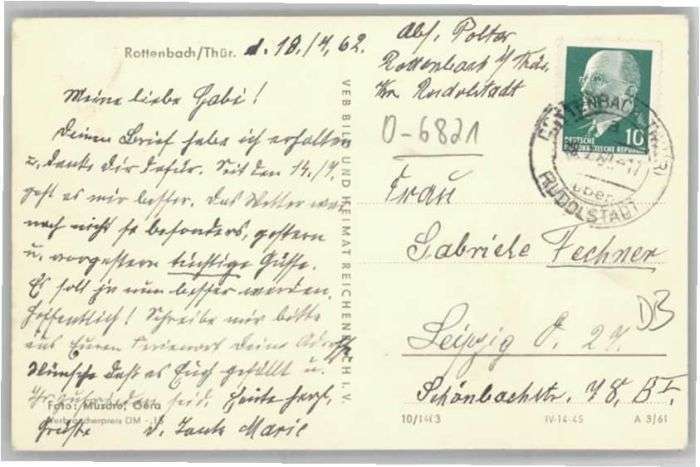 Rottenbach/Thür. d. 18./7. 62.
Meine liebe Gabi!
Deinen Brief habe ich erhalten
u. danke dir dafür. Seit den 14./7.
geht es mir besser. Das Wetter war
noch nicht so besonders, gestern
u. vorgestern tüchtige Güsse.
Es soll ja nun besser werden.
Hoffentlich! Schreibe mir bitte
aus Eurem Ferienort Deine Adr.
Wünsche daß es Euch gefällt u.
Ihr seid. Heute herzl.
Grüße d. Tante Marie
Foto: Müschö, Gera
Verbraucherpreis DM -,15
VEB BILD UND HEIMAT REICHENBACH I. V.
Abs. Polter
Rottenbach i/Thür.
Kr. Rudolstadt
O-6821
DEUTSCHE
DEMOKRATISCHE REPUBLIK
10
ROTTENBACH (THÜR)
über
RUDOLSTADT
Frau
Gabriele Fechner
DB
Leipzig O. 27.
Schönbachstr. 78. BI.
10/1403 IV-14-45 A 3/61